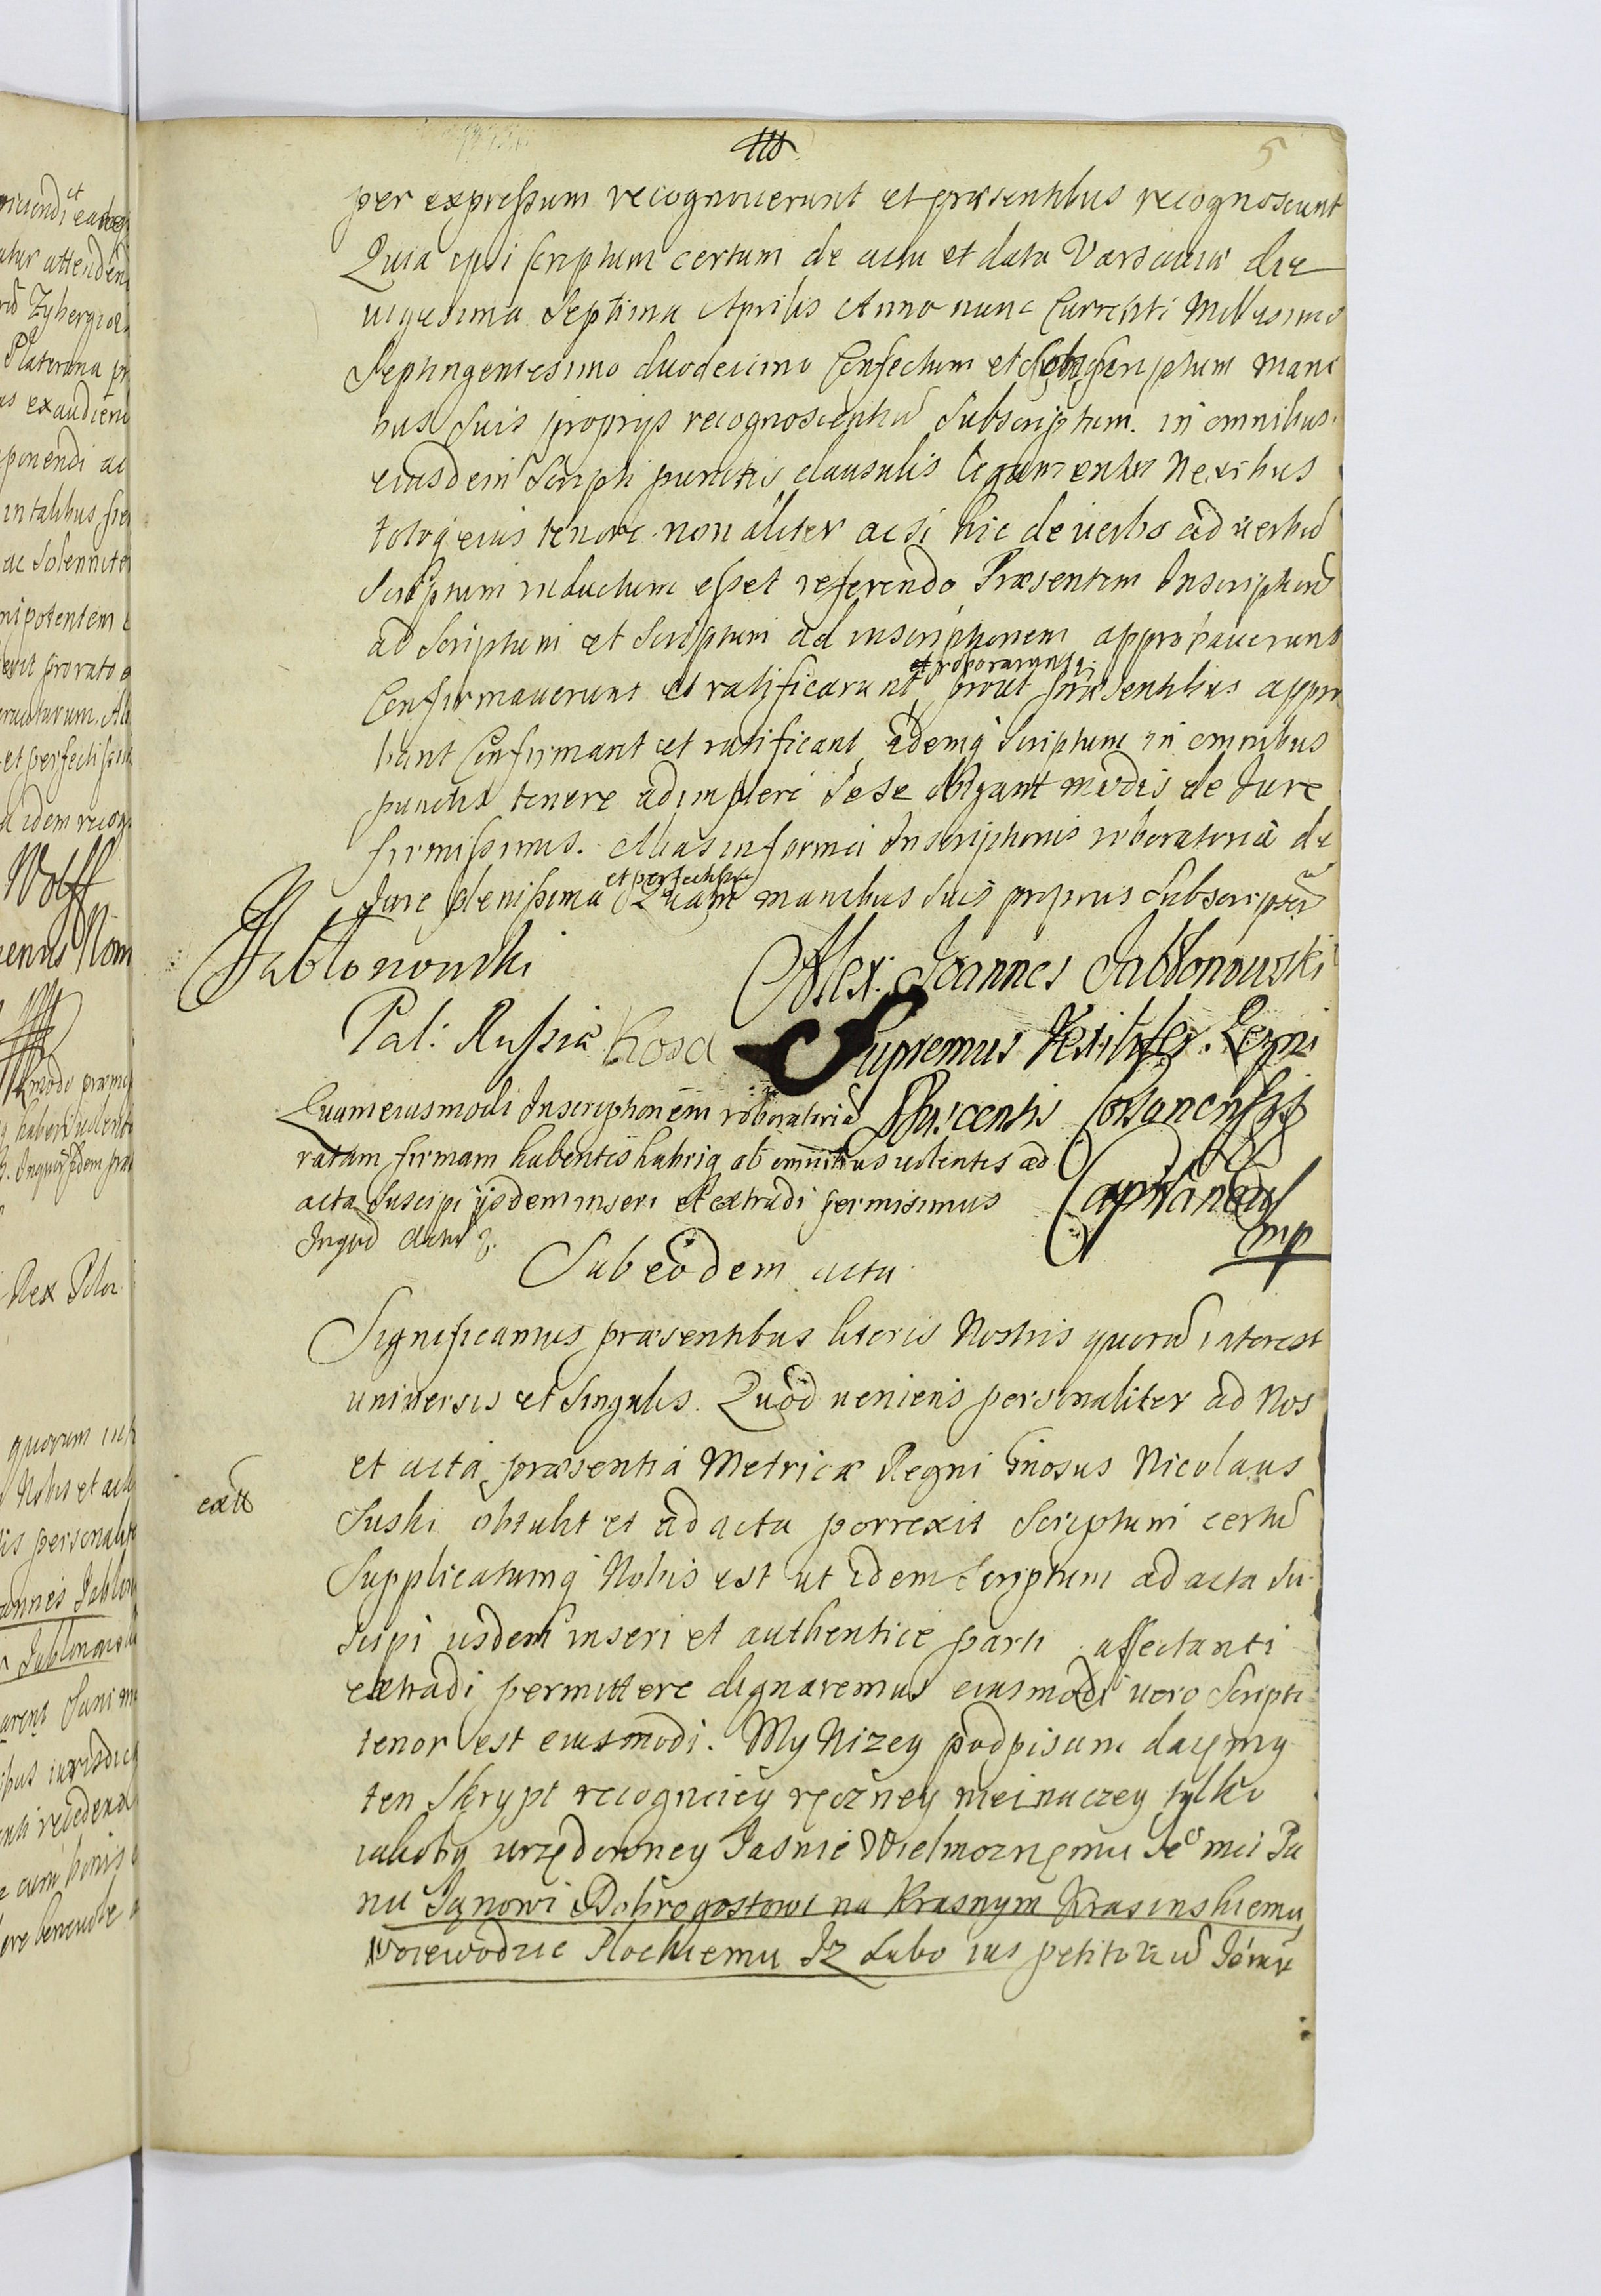 5
per expressum recognoverunt et præsentibus recognoscunt
Quia ipsi scriptum certum de actu et data Varsaviæ die
vigesima Septima Aprilis Anno nunc Currenti Millesimo
Septingentesimo duodecimo Confectum et scriptum mani
bus suis proprijs recognoscentiũ Subscriptum. in omnibus
eiusdem Scripti punctis clausulis ligamentis nexibus
totoq eius tenore non aliter acsi hic de verbo ad verbũ
Scriptum inductum esset referendo Præsentem Inscriptionẽ
ad Scriptum et Scriptum ad inscriptionem approbaverunt
et roborarunt
Confirmaverunt et ratificarunt prout præsentibus appro
bant Confirmant et ratificant, idemq scriptum in omnibus
punctis tenere adimplere sese obligant modis de Jure
firmissimis. Alias in forma Inscriptionis roboratoriæ de
et perfectissima
Jure plenissima Quam manibus suis proprijs Subscripserũt
Jabłonowski
Alex: Joannes Jabłonowski
Pal: Russiæ
Supremus Vexillifer Regni
Quam eiusmodi Inscriptionem roboratoriã
Buscensis Corsunensisq
ratam firmam habentes haberiq ab omnibus volentes ad
acta suscipi ijsdem inseri et extradi permisimus
Capitaneus
Inquod datur
mp
Sub eodem actu
Significamus præsentibus literis Nostris quorũ interest
universis et singulis. Quod veniens personaliter ad Nos
et acta præsentia Metricæ Regni Gnosus Nicolaus
extt
Suski obtulit et ad acta porrexit Scriptum certũ
Supplicatumq Nobis est ut idem Scriptum ad acta su
scipi ijsdem inseri et authentice parti affectanti
extradi permittere dignaremus eiusmodi vero Scripti
tenor est eiusmodi. My Nizey podpisani daiemy
ten Skrypt recogniciey ręczney nieinaczey tylko
iakoby urzędowney Jasnie Wielmoznemu Jeo mci Pa
nu Janowi Dobrogostowi na Krasnym Krasinskiemu
Woiewodzie Plockiemu Iz Lubo ius petitoriũ